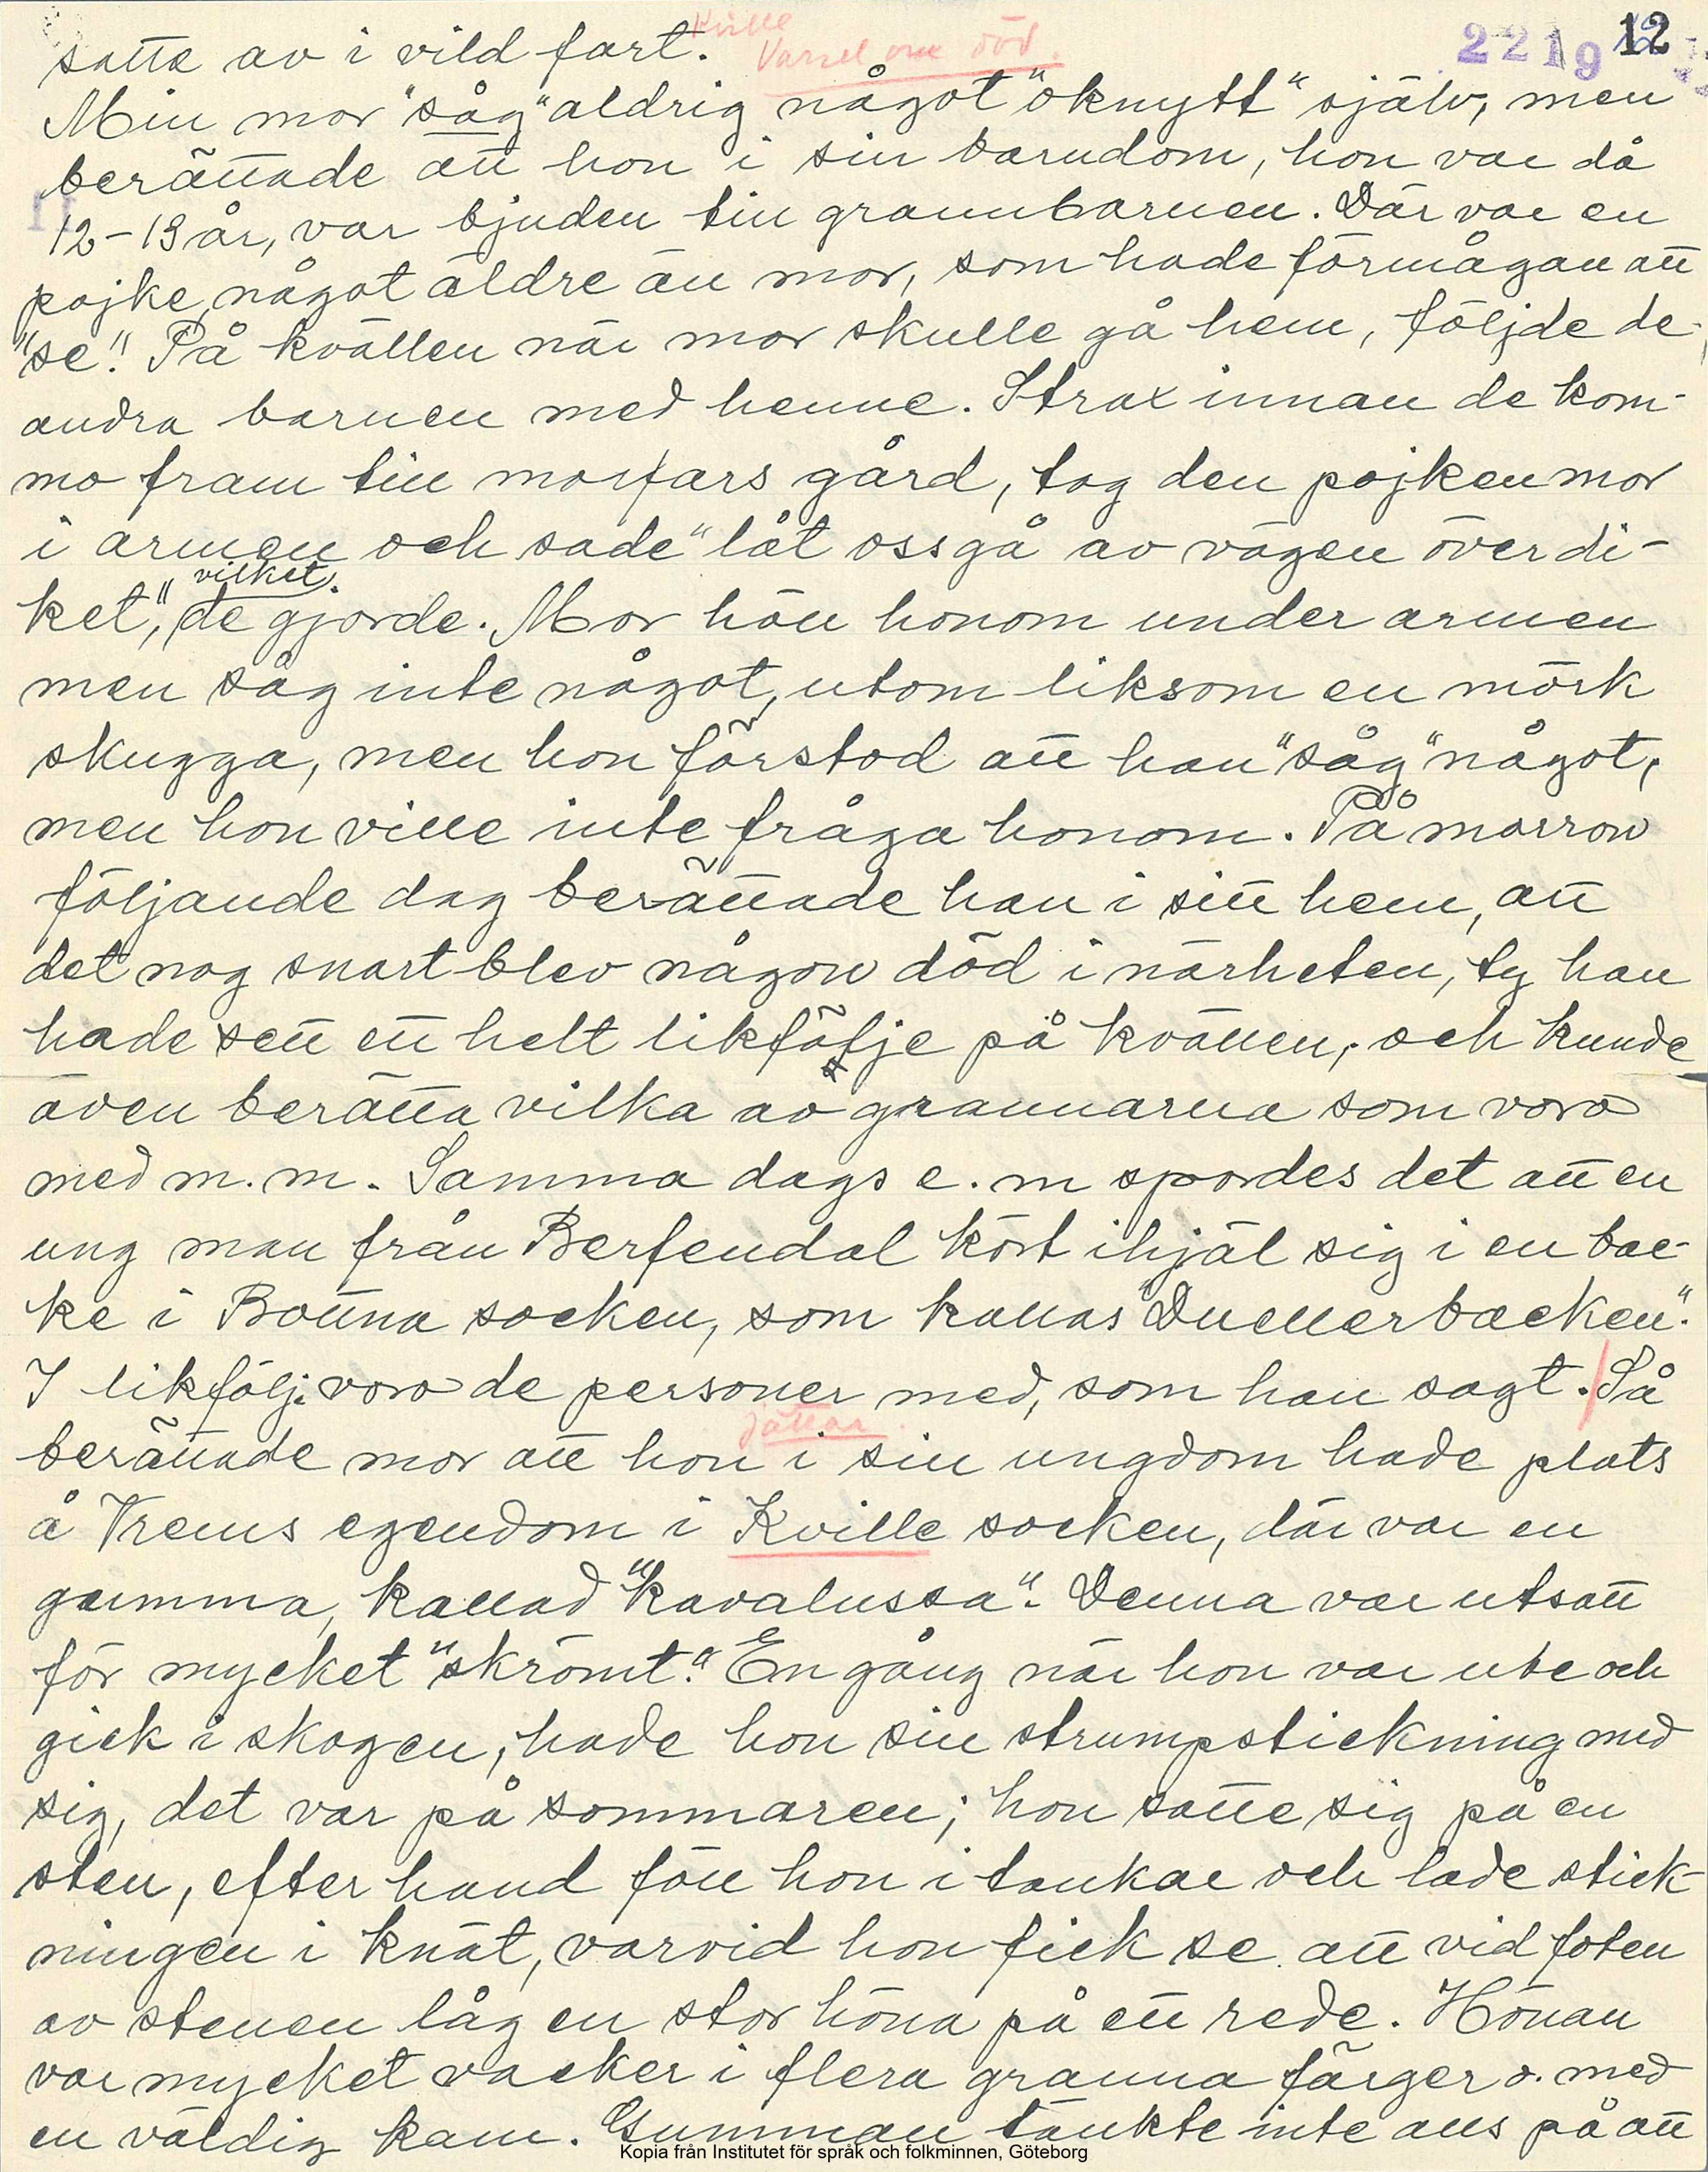 Kville
Varsel om död.
2219 12
satte av i vild fart.
Min mor "såg" aldrig något "oknytt" själv, men
berättade att hon i sin barndom, hon var då
11
12-13 år, var bjuden till grannbarnen. Där var en
pojke, något äldre än mor, som hade förmågan att
"se". På kvällen när mor skulle gå hem, följde de
andra barnen med henne. Strax innan de kom-
mo fram till morfars gård, tog den pojken mor
i armen och sade "låt oss gå av vägen över di-
ket", vilket de gjorde. Mor höll honom under armen
men såg inte något, utom liksom en mörk
skugga, men hon förstod att han "såg" något,
men hon ville inte fråga honom. På morron
följande dag berättade han i sitt hem, att
det nog snart blev någon död i närheten, ty han
hade sett ett helt likfölje på kvällen, och kunde
även berätta vilka av grannarna som voro
med m.m. Samma dags e.m spordes det att en
ung man från Berfendal kört ihjäl sig i en bac-
ke i Bottna socken, som kallas "Duellerbacken".
I likfölj. voro de personer med, som han sagt. Så
jättar.
berättade mor att hon i sin ungdom hade plats
å Vrems egendom i Kville socken, där var en
gumma, kallad "Kavalussa". Denna var utsatt
för mycket "skrömt". En gång när hon var ute och
gick i skogen, hade hon sin strumpstickning med
sig, det var på sommaren; hon satte sig på en
sten, efter hand föll hon i tankar och lade stick-
ningen i knät, varvid hon fick se att vid foten
av stenen låg en stor höna på ett rede. Hönan
var mycket vacker i flera granna färger o. med
en väldig kam. Gumman tänkte inte alls på att
Kopia från Institutet för språk och folkminnen, Göteborg